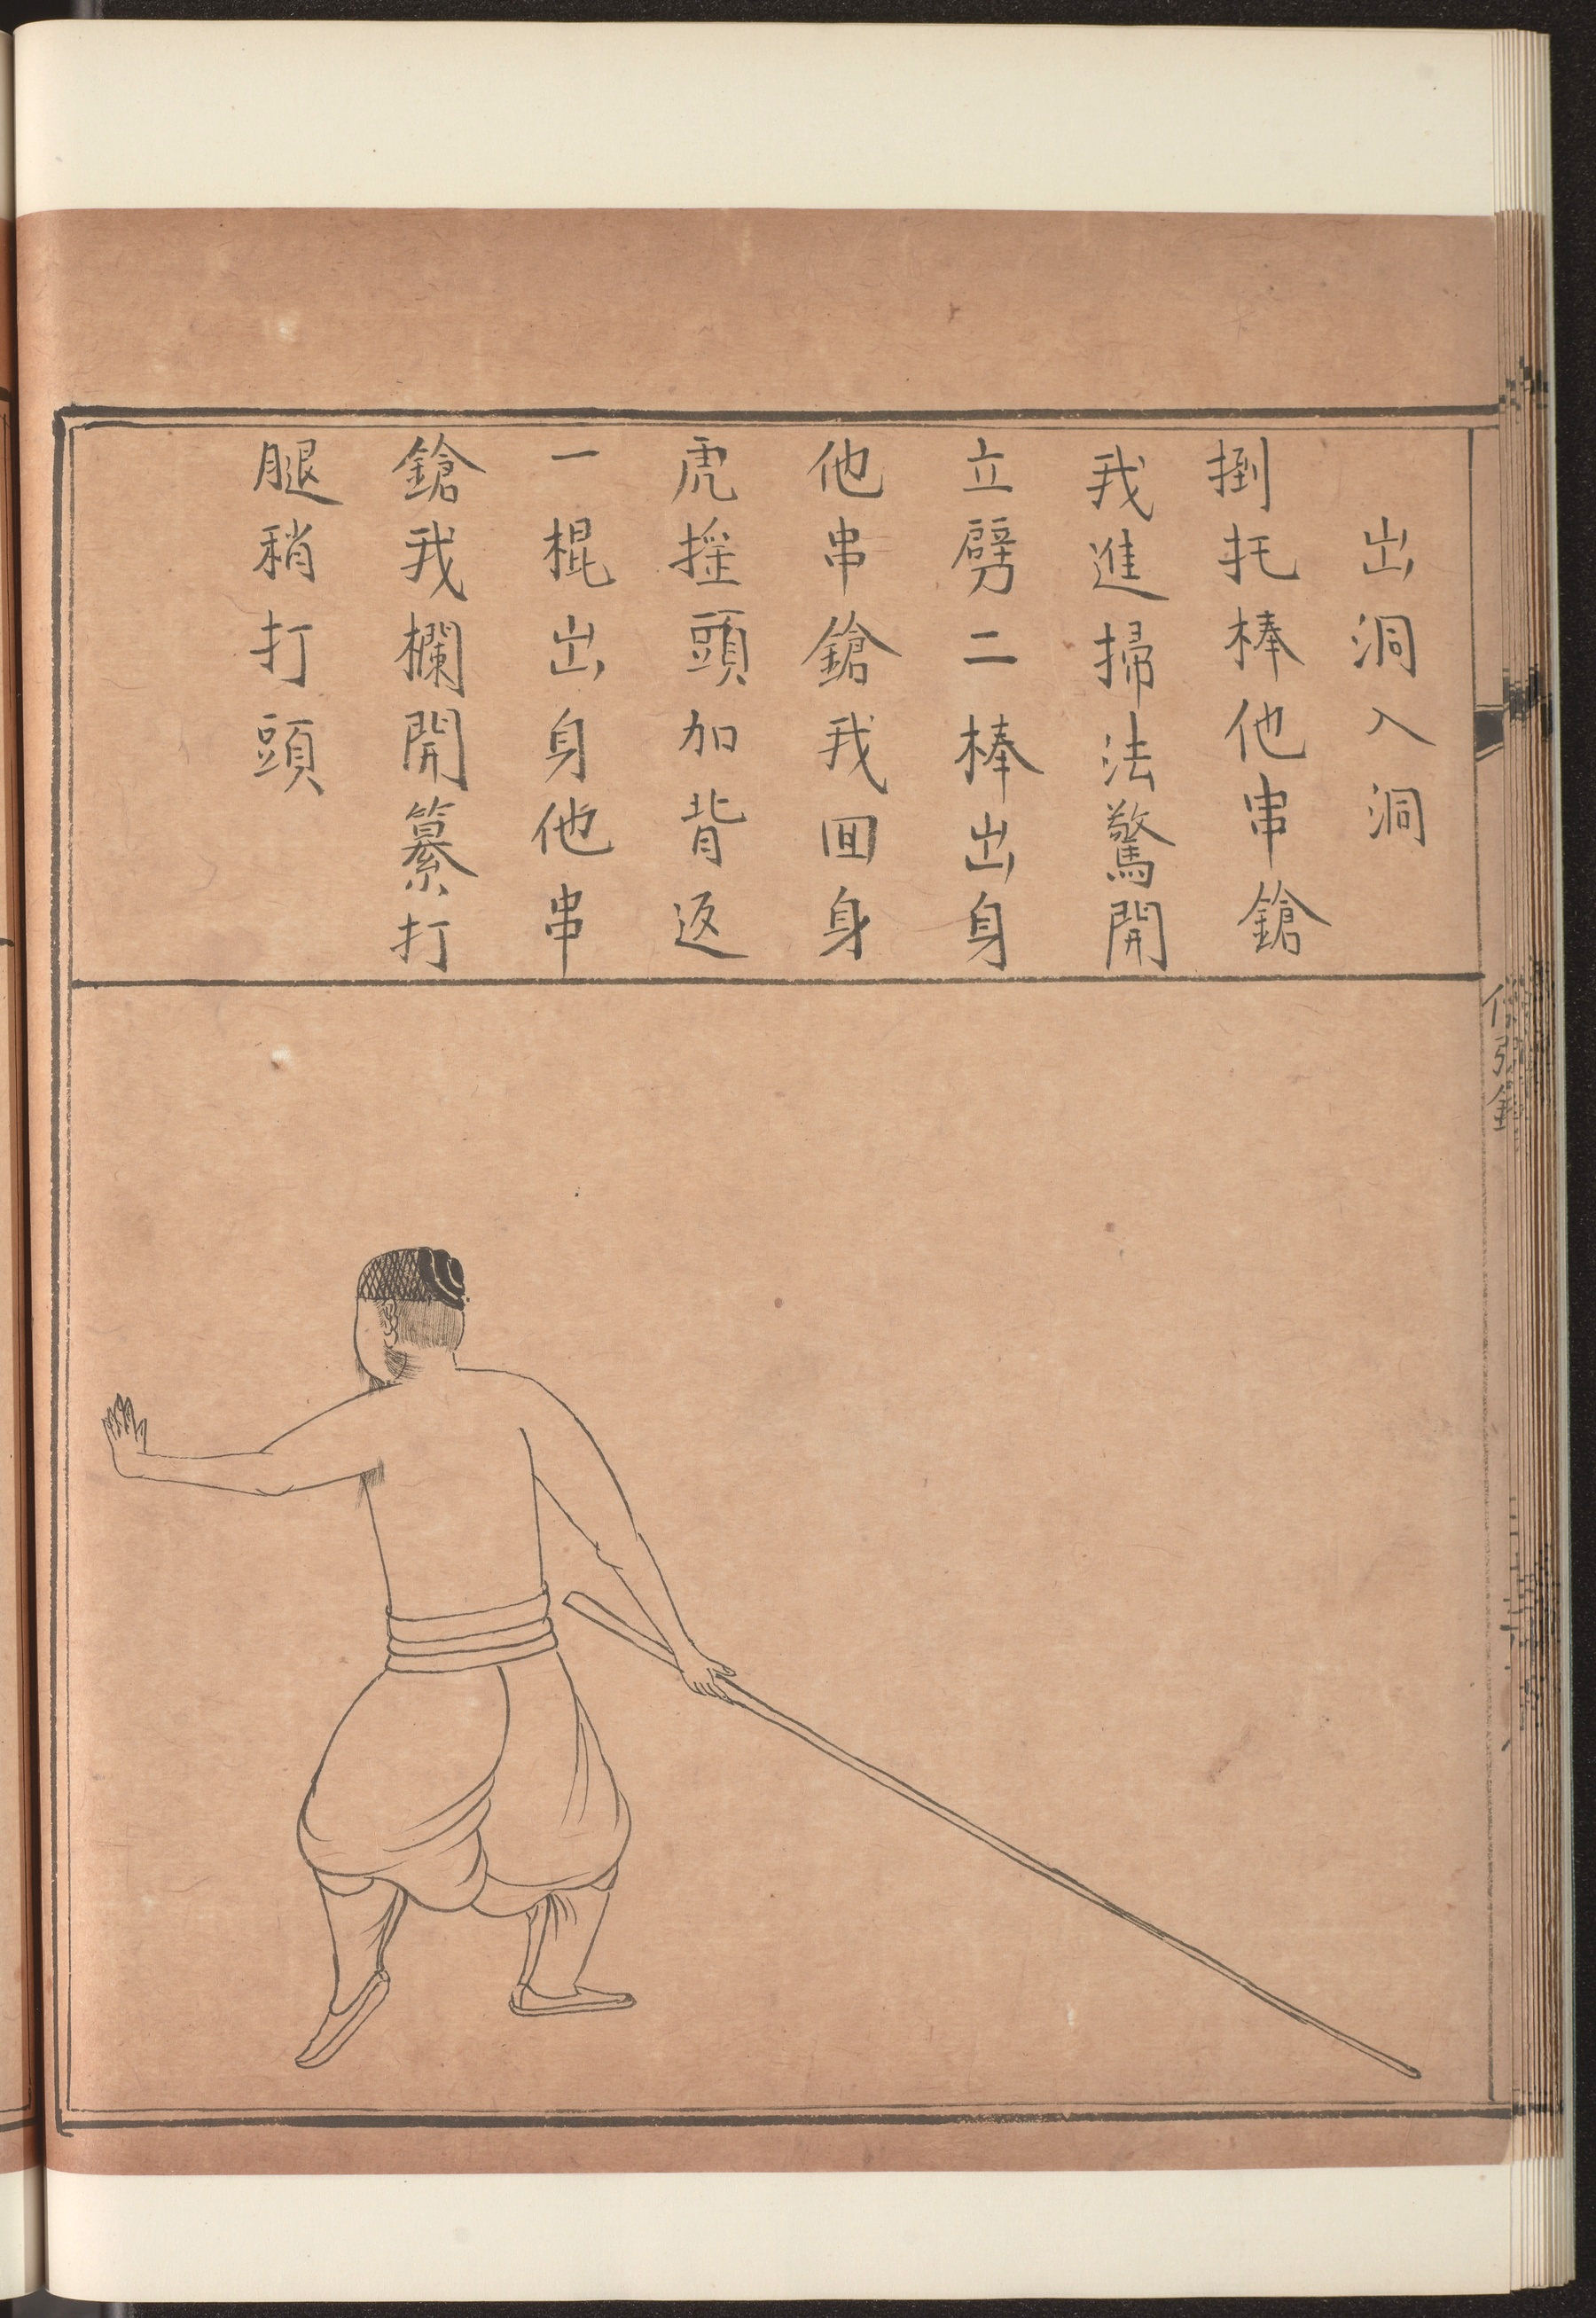 出洞入洞
捯扥棒他串鎗
我進掃法驚開
立劈二棒出身
他串鎗我回身
虎摇頭加背返
一棍出身他串
鎗我欄開纂打
腿稍打頭